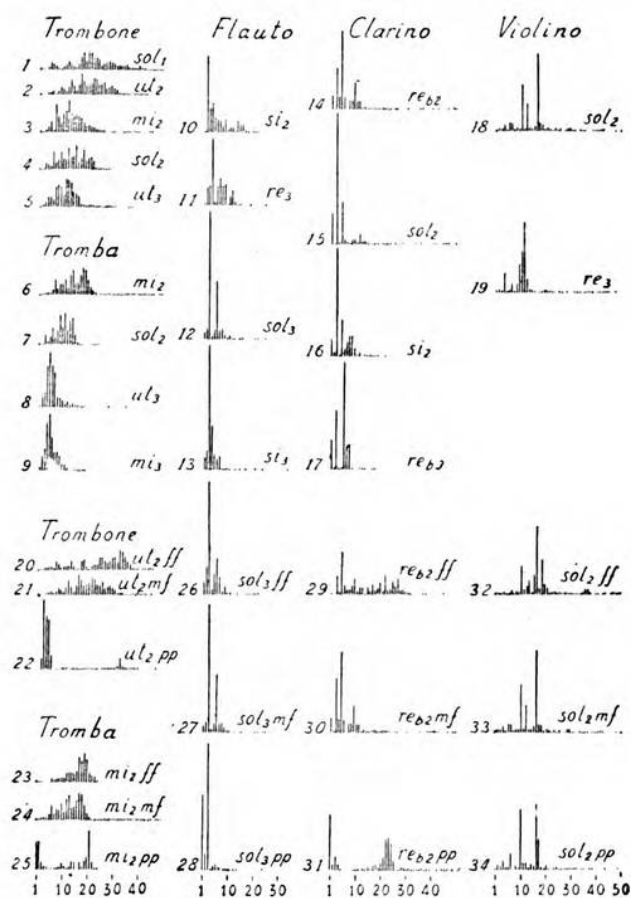 Trombone
1 sol1
2 ut2
3 mi2
4 sol2
5 ut3
Tromba
6 mi2
7 sol2
8 ut3
9 mi3
Trombone
20 ut2 ff
21 ut2 mf
22 ut2 pp
Tromba
23 mi2 ff
24 mi2 mf
25 mi2 pp
1 10 20 30 40
Flauto
10 si2
11 re3
12 sol3
13 si3
26 sol3 ff
27 sol3 mf
28 sol3 pp
1 10 20 30
Clarino
14 reb2
15 sol2
16 si2
17 reb3
29 reb2 ff
30 reb2 mf
31 reb2 pp
1 10 20 30 40
Violino
18 sol2
19 re3
32 sol2 ff
33 sol2 mf
34 sol2 pp
1 10 20 30 40 50